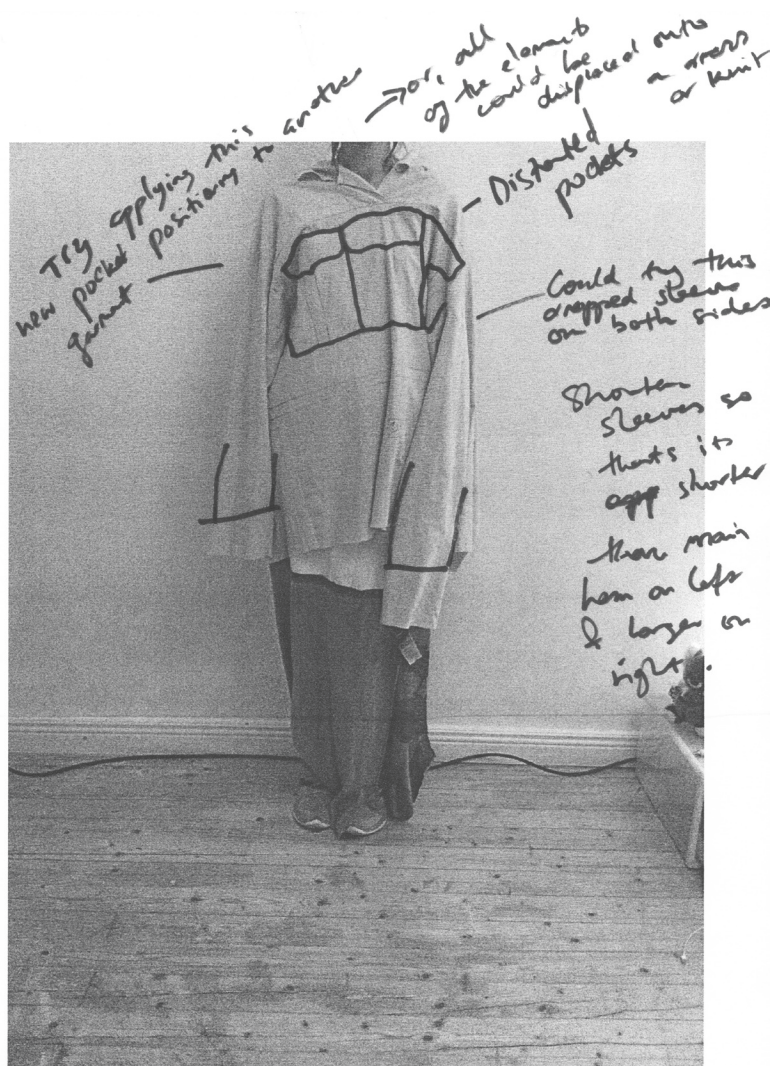 Try applying this
new pocket positioning to another
garment
→ or, all
of the elements
could be
displaced onto
a dress
or knit
Distorted
pockets
Could try this
dropped sleeve
on both sides
Shorten
sleeves so
thats its
shorter
than main
hem on left
& longer on
right.